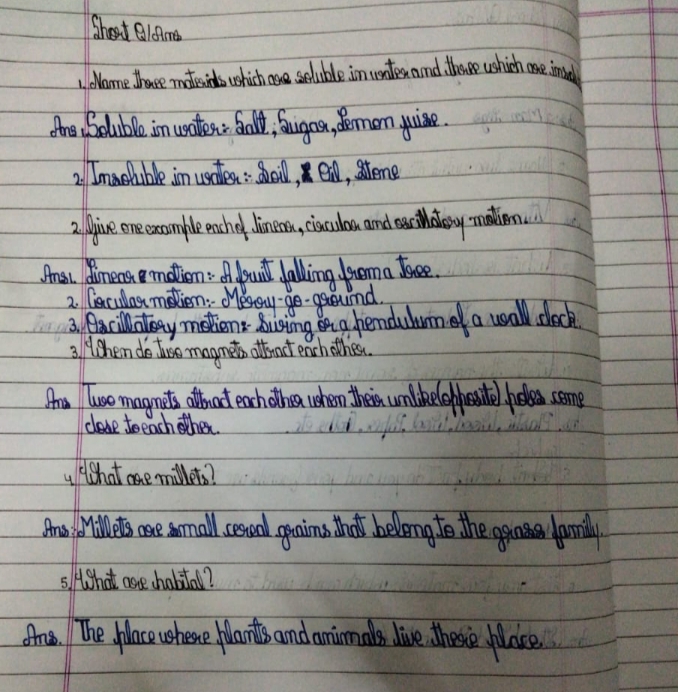 Short Q/Ans
1. Name three materials which are soluble in water and three which are insolu
Ans 1. Soluble in water:- Salt, Sugar, Lemon juise.
2. Insoluble in water:- Soil, Oil, Stone
2. Give one example each of linear, circular and oscillatory motion.
Ans1. Linear motion:- A fruit falling from a tree.
2. Circular motion:- Merry-go-ground.
3. Oscillatory motion:- Swing or a pendulum of a wall clock.
3. When do two magnets attract each other.
Ans Two magnets attract each other when their unlike (opposite) poles come
close to each other.
4. What are millets?
Ans:- Millets are small cereal grains that belong to the grass family.
5. What are habital?
Ans. The place where plants and animals live there place.